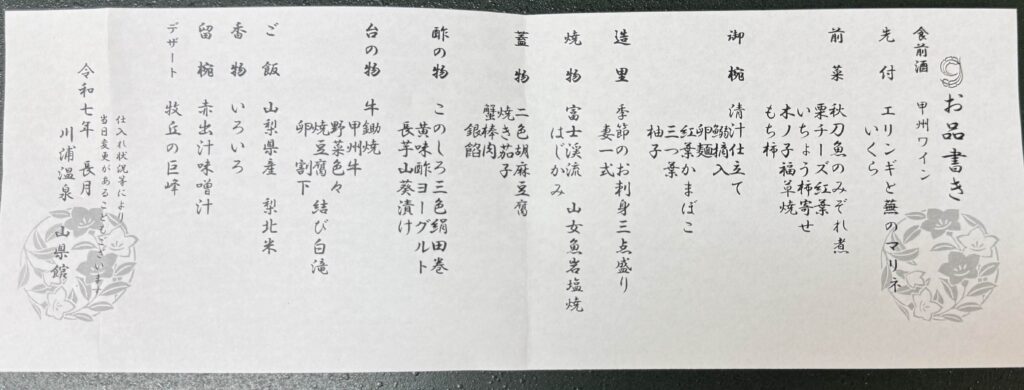 お品書き
食前酒 甲州ワイン
先付 エリンギと蕪のマリネ
いくら
前菜 秋刀魚のみぞれ煮
栗チーズ紅葉
いちょう柿寄せ
木ノ子福草焼
もち柿
御椀 清汁仕立て
鰯摘入
卵麺
紅葉かまぼこ
三つ葉
柚子
造里 季節のお刺身三点盛り
妻一式
焼物 富士渓流 山女魚岩塩焼
はじかみ
蓋物 二色胡麻豆腐
焼き茄子
蟹棒肉
銀餡
酢の物 このしろ三色絹田巻
黄味酢ヨーグルト
長芋山葵漬け
台の物 牛鋤焼
甲州牛
野菜色々
焼豆腐 結び白滝
卵 割下
ご飯 山梨県産 梨北米
香物 いろいろ
留椀 赤出汁味噌汁
デザート 牧丘の巨峰
仕入れ状況等により
当日変更があることもございます
令和七年 長月
川浦温泉 山県館